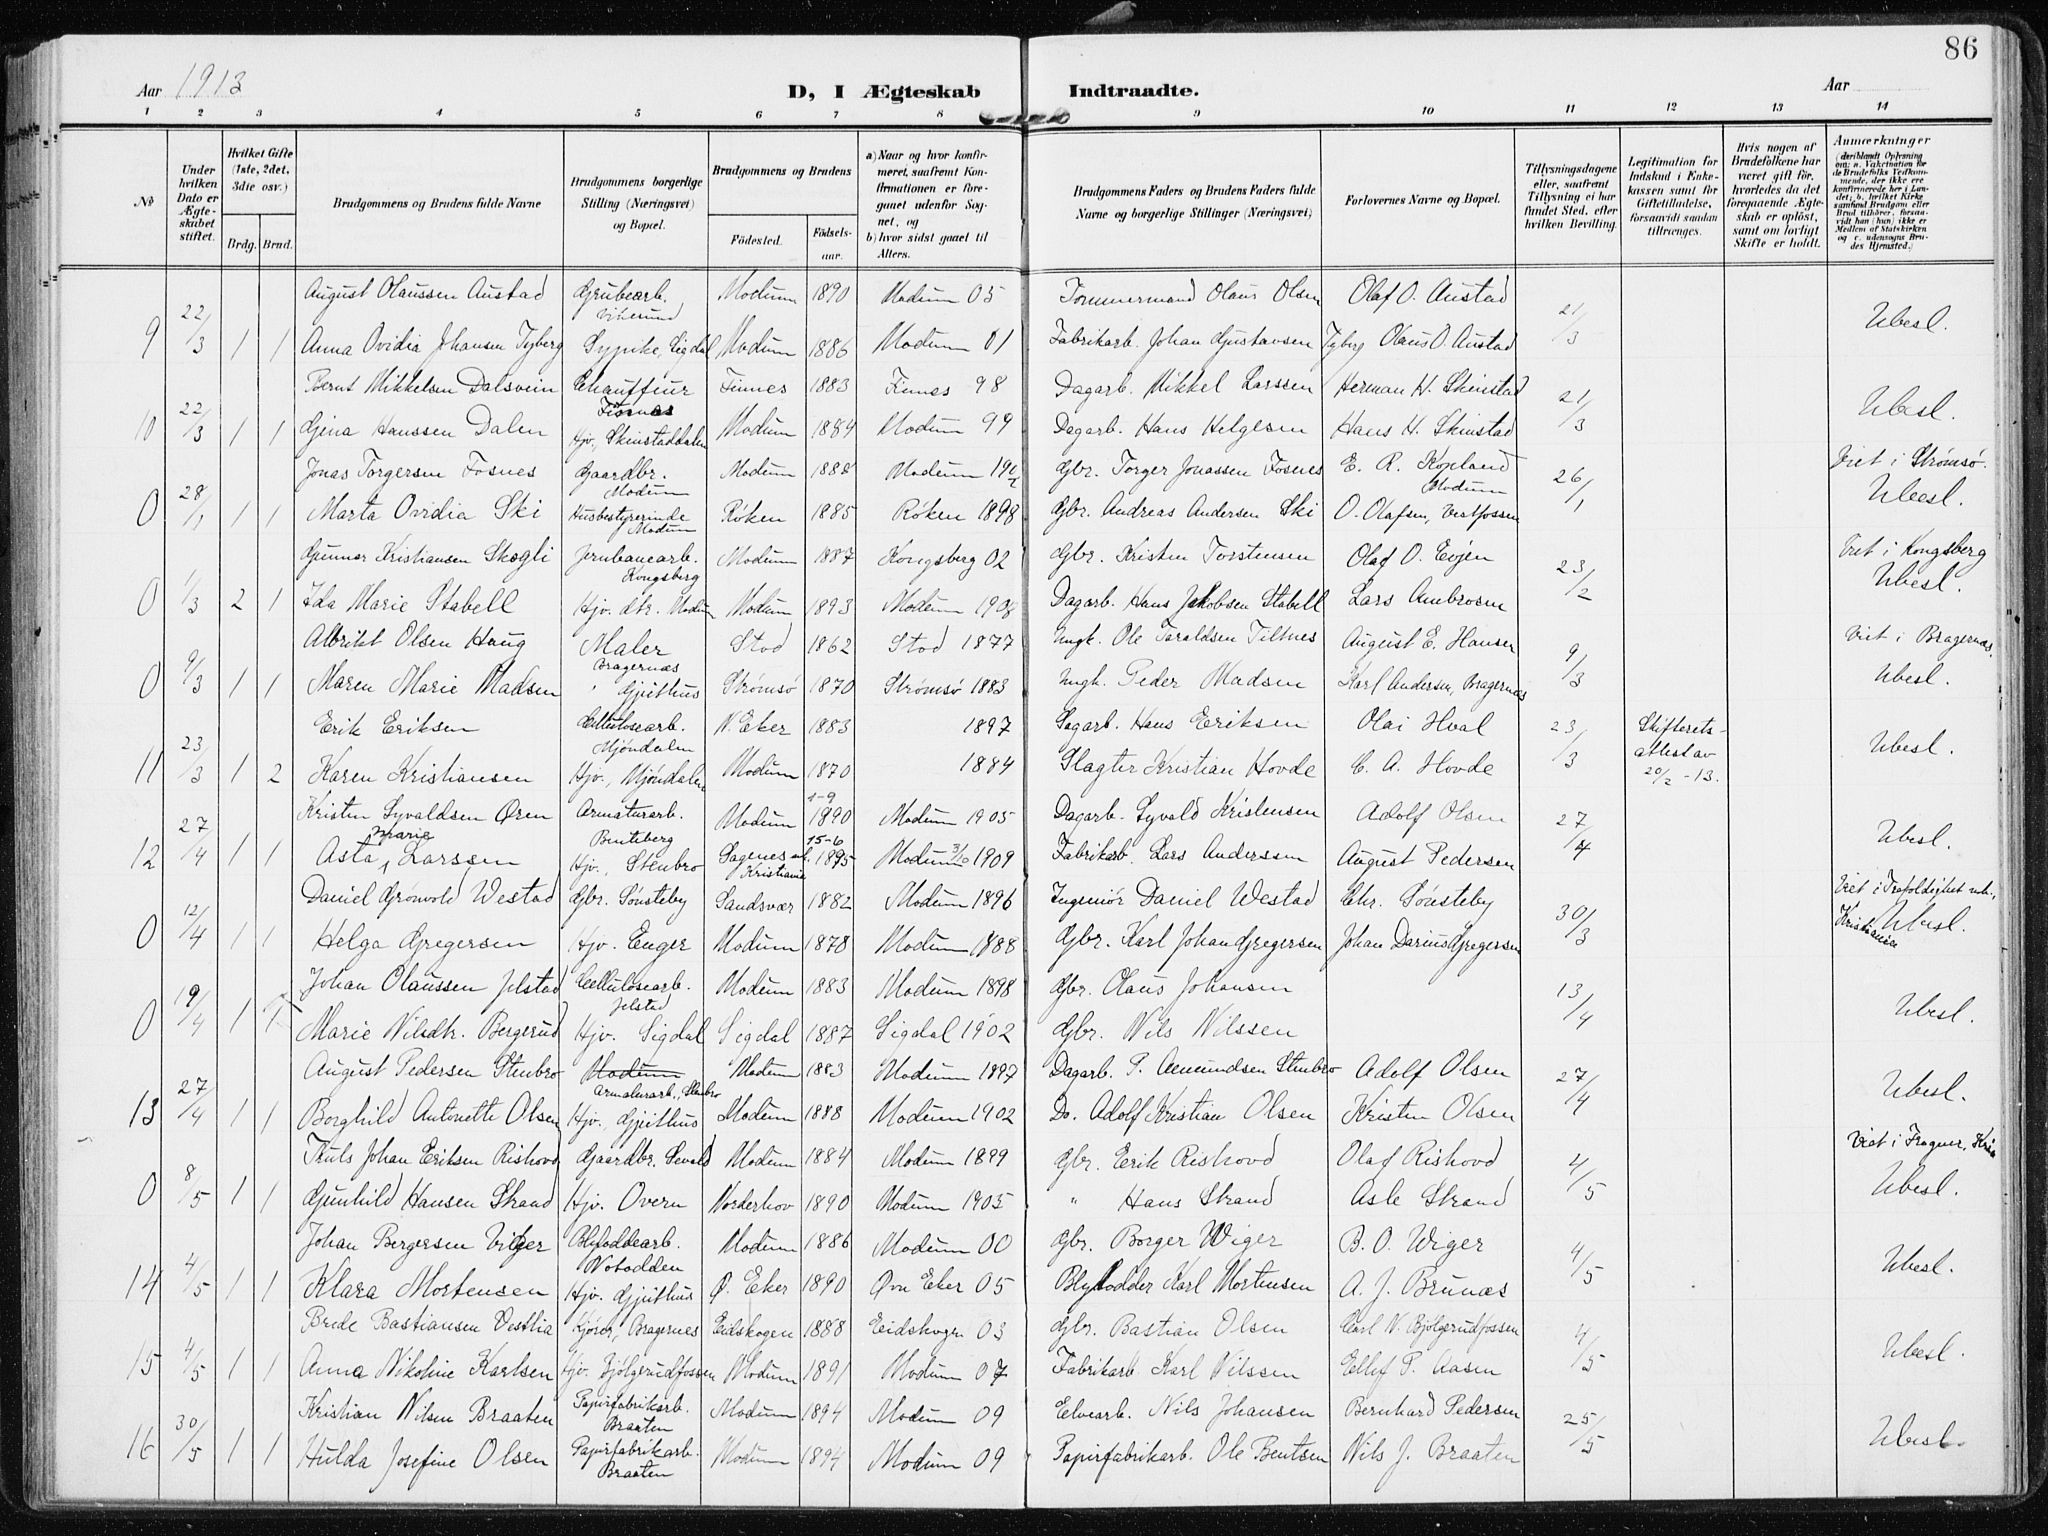 86
Aar 1913
D, I Ægteskab Indtraadte.
Aar
1 2 3 4 5 6 7 8 9 10 11 12 13 14
No
Under hvilken Dato er Ægteskabet stiftet.
Hvilket Gifte (1ste, 2det, 3die osv.)
Brdg. Brud.
Brudgommens og Brudens fulde Navne
Brudgommens borgerlige Stilling (Næringsvei) og Bopæl.
Brudgommens og Brudens
Fødested.
Fødselsaar.
a) Naar og hvor konfirmeret, saafremt Konfirmationen er foregaaet udenfor Sognet, og
b) hvor sidst gaaet til Alters.
Brudgommens Faders og Brudens Faders fulde Navne og borgerlige Stillinger (Næringsvei)
Forlovernes Navne og Bopæl.
Tillysningsdagene eller, saafremt Tillysning ei har fundet Sted, efter hvilken Bevilling.
Legitimation for Indskud i Enkekassen samt for Giftetilladelse, forsaavidt saadan tiltrænges.
Hvis nogen af Brudefolkene har været gift før, hvorledes da det foregaaende Ægteskab er opløst, samt om lovligt Skifte er holdt.
Anmærkninger (deriblandt Oplysning om: a. Vakcination for de Brudefolks Vedkommende, der ikke ere konfirmerede her i Landet; b. hvilket Kirkesamfund Brudgom eller Brud tilhører, forsaavidt han (hun) ikke er Medlem af Statskirken og c. udensogns Brudes Hjemsted.)
August Olaussen Austad Grubearb. Vikesund Modum 1890 Modum 05 Tømmermand Olaus Olsen Olaf O. Austad
9 22/3 1 1 Anna Ovidia Johansen Tyberg Sypike, Sigdal Modum 1886 Modum 01 Fabrikarb. Johan Gustavsen Tyberg Olaus O. Austad 21/3 Ubesl.
Bernt Mikkelsen Dalsvein Chauffeur Finnes 1883 Finnes 98 Dagarb. Mikkel Larssen Herman H. Skinstad
10 22/3 1 1 Gina Hanssen Dalen Hjv., Skinstaddalen Modum 1884 Modum 99 Dagarb. Hans Helgesen Hans H. Skinstad 21/3 Ubesl.
Jonas Torgersen Fosnes Gaardbr. Modum Modum 1888 Modum Gbr. Torger Jonassen Fosnes E. R. Kopland Modum Viet i Strømsø.
0 28/1 1 1 Marta Ovidia Ski Husbestyrerinde Modum Røken 1885 Røken 1898 Gbr. Andreas Andersen Ski O. Olafsen, Vestfossen 26/1 Ubesl.
Gunnar Kristiansen Skøgli Jernbanearb. Kongsberg Modum 1887 Kongsberg 02 Gbr. Kristen Torstensen Olaf O. Evjen Viet i Kongsberg
0 1/3 2 1 Ida Marie Stabell Hjv. dtr. Modum Modum 1893 Modum 1908 Dagarb. Hans Jakobsen Stabell Lars Ambrosen 23/2 Ubesl.
Albrikt Olsen Haug Maler Bragernæs Stod 1862 Stod 1877 Ungk. Ole Taraldsen Tiltnes August E. Hansen Viet i Bragernæs.
0 9/3 1 1 Maren Marie Madsen " Gjeithus Strømsø 1870 Strømsø 1883 Ungk. Peder Madsen Karl Andersen, Bragernæs 9/3 Ubesl.
Erik Eriksen Cellulosearb. Mjøndalen N. Eker 1883 1897 Sagarb. Hans Eriksen Olai Hval
11 23/3 1 2 Karen Kristiansen Hjv. Mjøndalen Modum 1870 1884 Slagter Kristian Hovde C. A. Hovde 23/3 Skifterets-attest av 20/2-13. Ubesl.
Kristen Syvaldsen Øren Armaturarb. Benteberg Modum 1-9 1890 Modum 1905 Dagarb. Syvald Kristensen Adolf Olsen
12 27/4 1 1 Asta Marie Larssen Hjv., Stenbro Sagenes Kristiania 15-6 1895 Modum 3/10 1909 Fabrikarb. Lars Anderssen August Pedersen 27/4 Ubesl.
Daniel Grønvold Westad Gbr. Sønsteby Sandsvær 1882 Modum 1896 Ingeniør Daniel Westad Chr. Sønsteby Viet i Trefoldighet Kristiania
0 12/4 1 1 Helga Gregersen Hjv. Enger Modum 1878 Modum 1888 Gbr. Karl Johan Gregersen Johan Darius Gregersen 30/3 Ubesl.
Johan Olaussen Jelstad Cellulosearb. Jelstad Modum 1883 Modum 1898 Gbr. Olaus Johansen
0 19/4 1 1 Marie Nilsdtr. Bergerud Hjv. Sigdal Sigdal 1887 Sigdal 1902 Gbr. Nils Nilssen 13/4 Ubesl.
August Pedersen Stenbro Modum Armaturarb., Stenbro Modum 1883 Modum 1897 Dagarb. P. Aemundsen Stenbro Adolf Olsen
13 27/4 1 1 Borghild Antonette Olsen Hjv., Gjeithus Modum 1888 Modum 1902 Do. Adolf Kristian Olsen Kristen Olsen 27/4 Ubesl.
Truls Johan Eriksen Rishovd Gaardbr. Sevald Modum 1884 Modum 1899 Gbr. Erik Rishovd Olaf Rishovd Viet i Frogner, Kria
0 8/5 1 1 Gunhild Hansen Strand Hjv. Overn Norderhov 1890 Modum 1905 " Hans Strand Asle Strand 4/5 Ubesl.
Johan Bergersen Viger Blyloddearb. Notodden Modum 1886 Modum 00 Gbr. Borger Wiger B. O. Wiger
14 4/5 1 1 Klara Mortensen Hjv. Gjeithus Ø. Eker 1890 Øvre Eker 05 Blylodder Karl Mortensen A. J. Brunæs 4/5 Ubesl.
Brede Bastiansen Vestlia Kjører, Bragernes Eidskogen 1888 Eidskogn 03 Gbr. Bastian Olsen Carl N. Bjølgerudfossen
15 4/5 1 1 Anna Nikoline Karlsen Hjv. Bjølgerudfossen Modum 1891 Modum 07 Fabrikarb. Karl Nilssen Ellef P. Aasen 4/5 Ubesl.
Kristian Nilsen Braaten Papirfabrikarb. Braaten Modum 1894 Modum 09 Elvearb. Nils Johansen Bernhard Pedersen
16 30/5 1 1 Hulda Josefine Olsen Papirfabrikarb. Braaten Modum 1894 Modum 09 Papirfabrikarb. Ole Bentsen Nils J. Braaten 25/5 Ubesl.